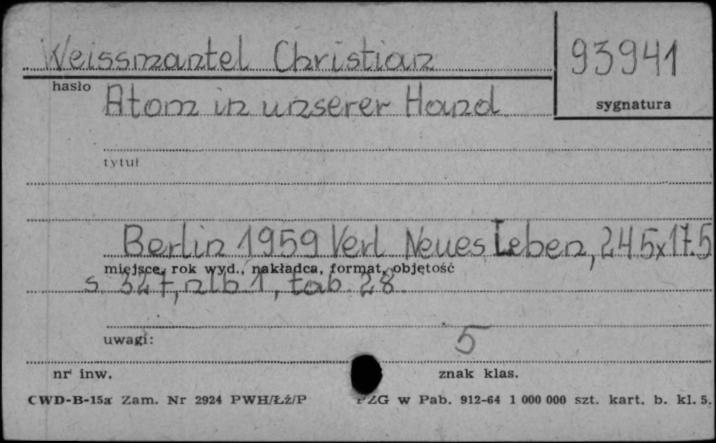 Weissmantel Christian 93941
hasło sygnatura
Atom in unserer Hand
tytuł
Berlin 1959 Verl Neues Leben, 24.5x17.5
miejsce, rok wyd., nakładca, format, objętość
s. 327, nlb 1, tab. 28
uwagi: 5
nr inw. znak klas.
CWD-B-15a Zam. Nr 2924 PWH/Łż/P PZG w Pab. 912-64 1 000 000 szt. kart. b. kl. 5.